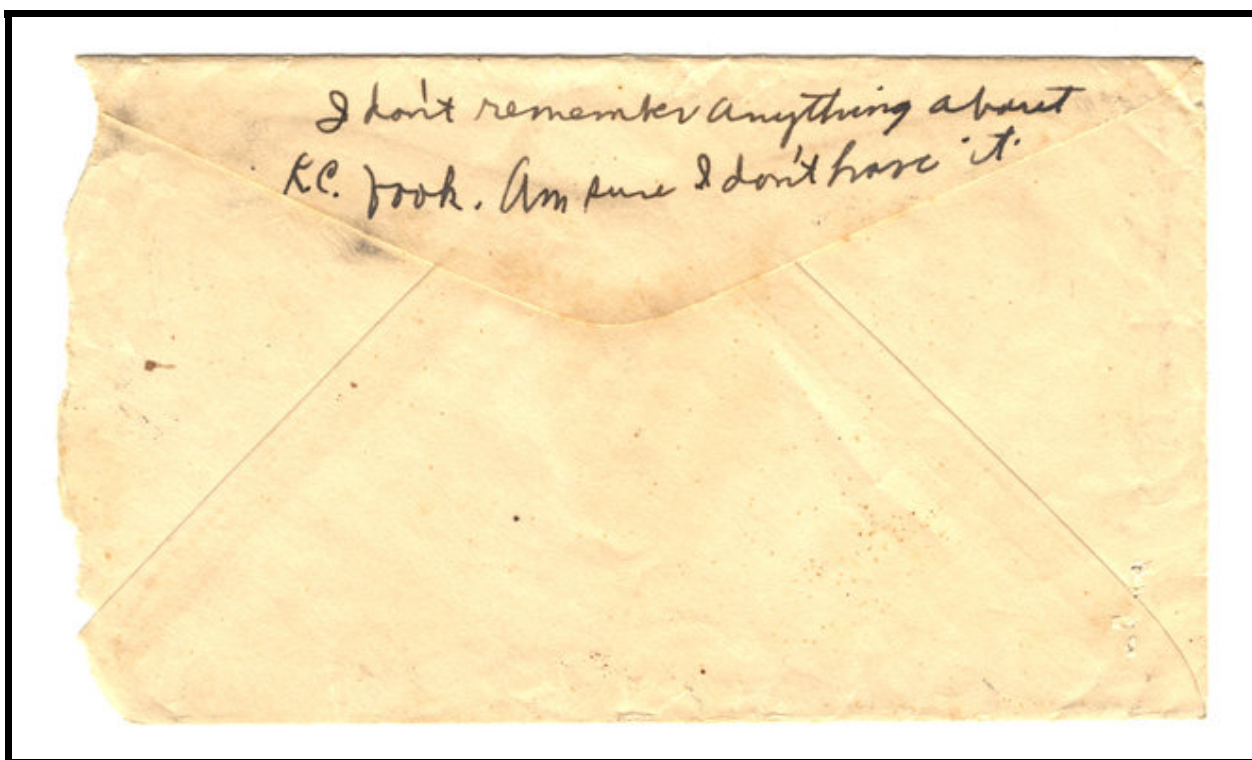 I don't remember anything about
K.C. book. Am sure I don't have it.